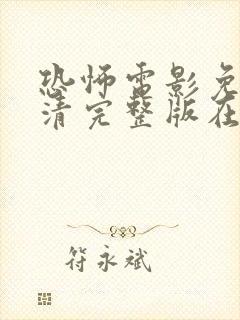 恐怖电影免
清完整版在
符永斌